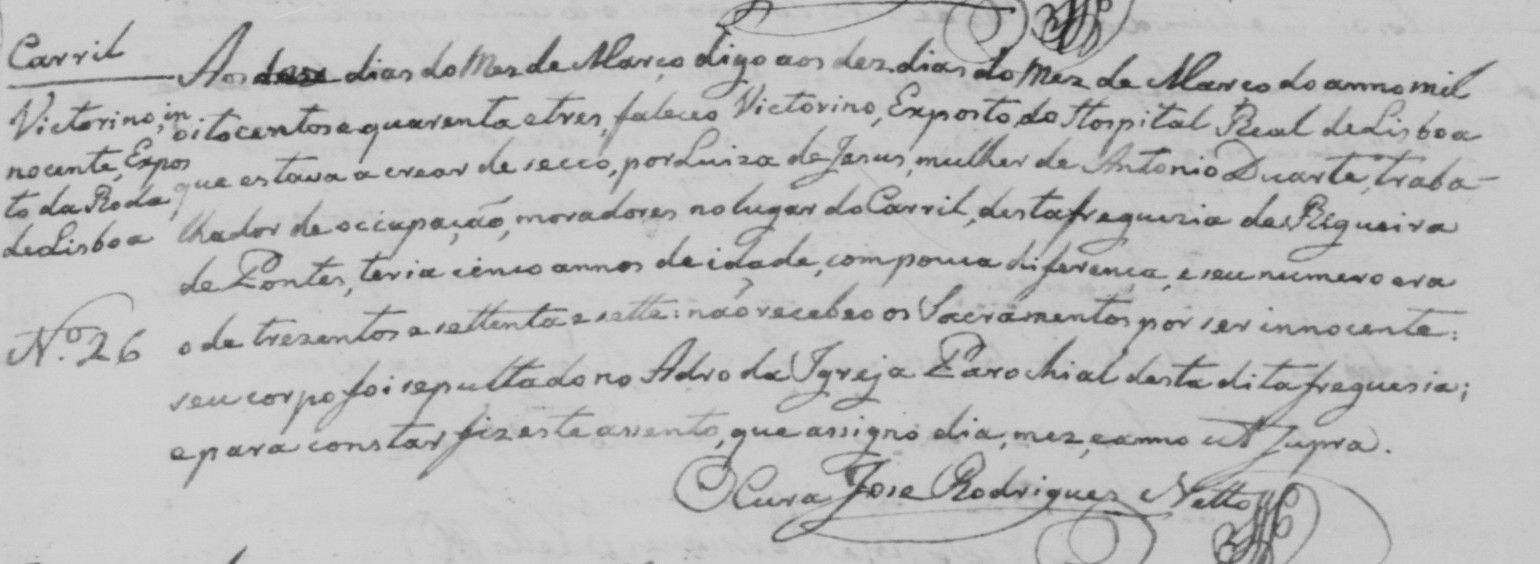 Carril
Victorino, in
nocente, Expos
to da Roda
de Lisboa
Nº 26
Aos dias do Mez de Março digo aos dez dias do Mez de Março do anno mil
oitocentos e quarenta e tres, faleceo Victorino, Exposto do Hospital Real de Lisboa
que estava a crear de secco, por Luiza de Jesus, mulher de Antonio Duarte, traba-
lhador de occupação, moradores no lugar do Carril, desta freguezia de Regueira
de Pontes, teria cinco annos de idade, com pouca diferença, e seu numero era
o de trezentos e settenta e sette: não recebeo os Sacramentos por ser innocente:
seu corpo foi sepultado no Adro da Igreja Parochial desta dita freguesia;
e para constar fiz este assento, que assigno dia, mez, e anno ut supra.
O Cura Jose Rodrigues Netto